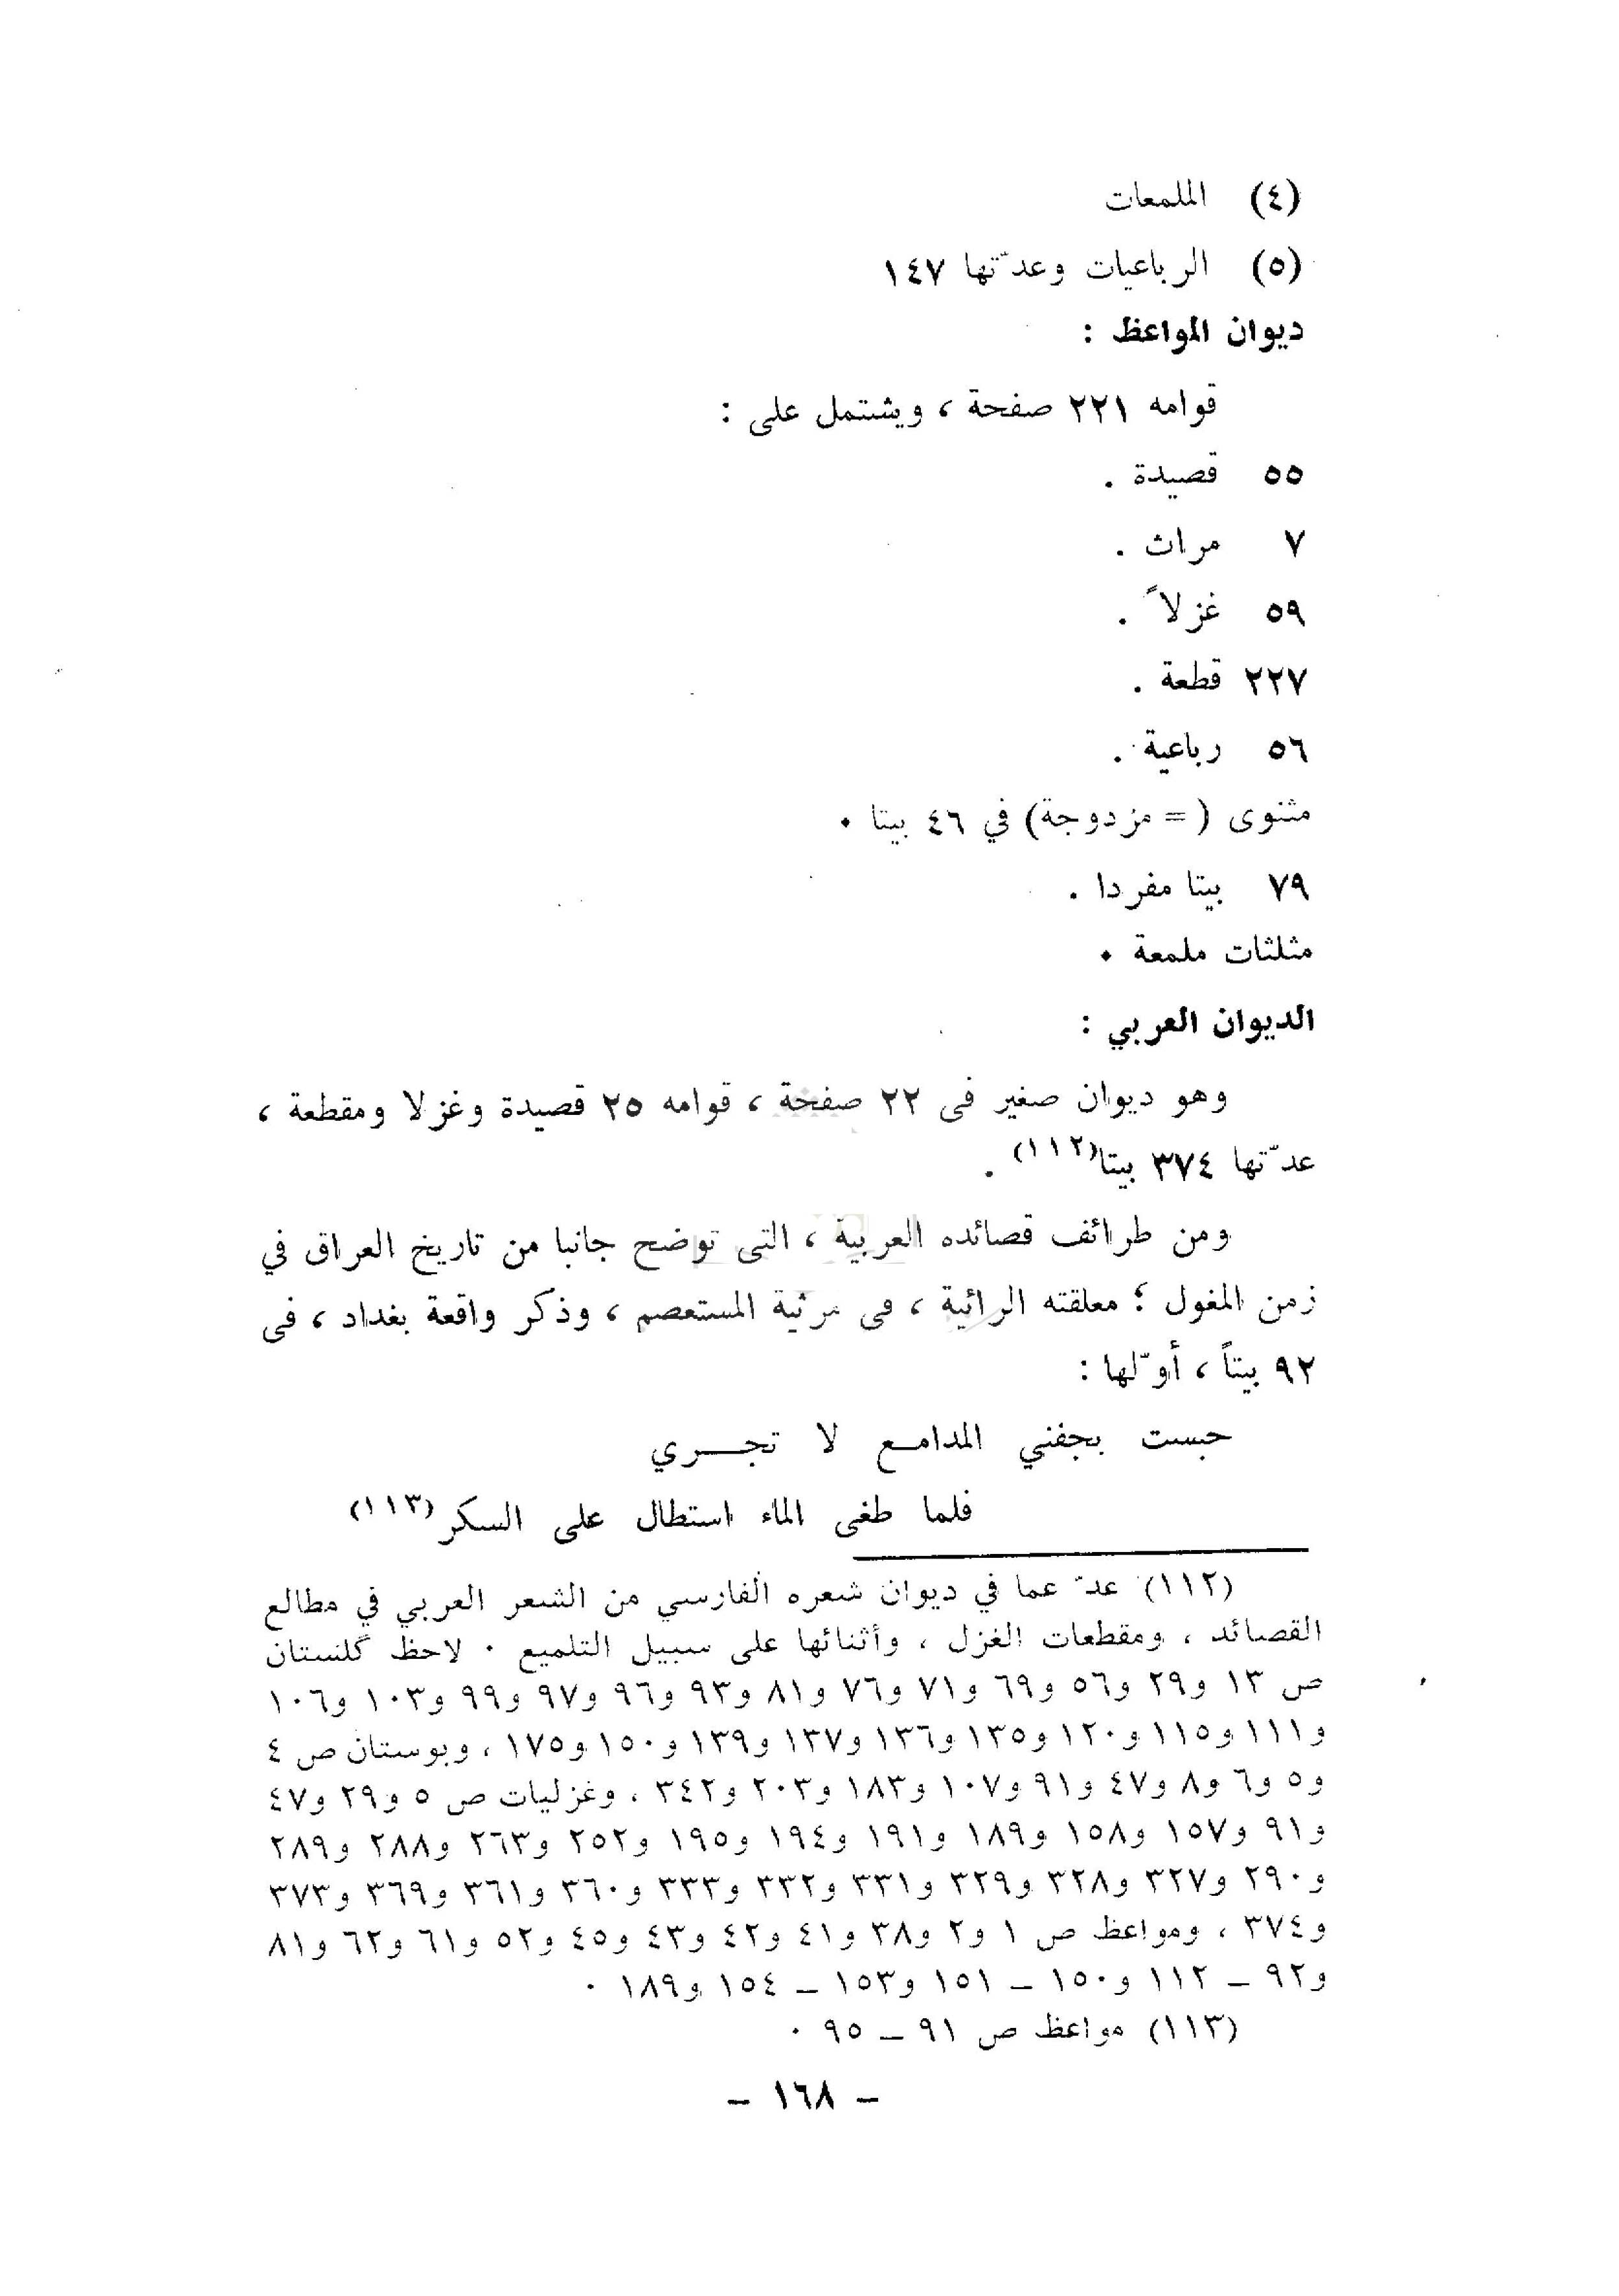 (٤) الملمعات
(٥) الرباعيات وعدّتها ١٤٧
ديوان المواعظ :
قوامه ٢٢١ صفحة ، ويشتمل على :
٥٥ قصيدة .
٧ مراث .
٥٩ غزلاً .
٢٢٧ قطعة .
٥٦ رباعية .
مثنوى ( = مزدوجة) في ٤٦ بيتا .
٧٩ بيتا مفردا .
مثلثات ملمعة .
الديوان العربي :
وهو ديوان صغير فى ٢٢ صفحة ، قوامه ٢٥ قصيدة وغزلا ومقطعة ،
عدّتها ٣٧٤ بيتا(١١٢) .
ومن طرائف قصائده العربية ، التى توضح جانبا من تاريخ العراق في
زمن المغول ؛ معلقته الرائية ، فى مرثية المستعصم ، وذكر واقعة بغداد ، فى
٩٢ بيتاً ، أوّلها :
حبست بجفني المدامـع لا تجـــري
فلما طغى الماء استطال على السكر(١١٣)
(١١٢) عدّ عما في ديوان شعره الفارسي من الشعر العربي في مطالع
القصائد ، ومقطعات الغزل ، وأثنائها على سبيل التلميع . لاحظ گلستان
ص ١٣ و٢٩ و٥٦ و٦٩ و٧١ و٧٦ و٨١ و٩٣ و٩٦ و٩٧ و٩٩ و١٠٣ و١٠٦
و١١١ و١١٥ و١٢٠ و١٣٥ و١٣٦ و١٣٧ و١٣٩ و١٥٠ و١٧٥ ، وبوستان ص ٤
و٥ و٦ و٨ و٤٧ و٩١ و١٠٧ و١٨٣ و٢٠٣ و٣٤٢ ، وغزليات ص ٥ و٢٩ و٤٧
و٩١ و١٥٧ و١٥٨ و١٨٩ و١٩١ و١٩٤ و١٩٥ و٢٥٢ و٢٦٣ و٢٨٨ و٢٨٩
و٢٩٠ و٣٢٧ و٣٢٨ و٣٢٩ و٣٣١ و٣٣٢ و٣٣٣ و٣٦٠ و٣٦١ و٣٦٩ و٣٧٣
و٣٧٤ ، ومواعظ ص ١ و٢ و٣٨ و٤١ و٤٢ و٤٣ و٤٥ و٥٢ و٦١ و٦٢ و٨١
و٩٢ – ١١٢ و١٥٠ – ١٥١ و١٥٣ – ١٥٤ و١٨٩ .
(١١٣) مواعظ ص ٩١ – ٩٥ .
– ١٦٨ –